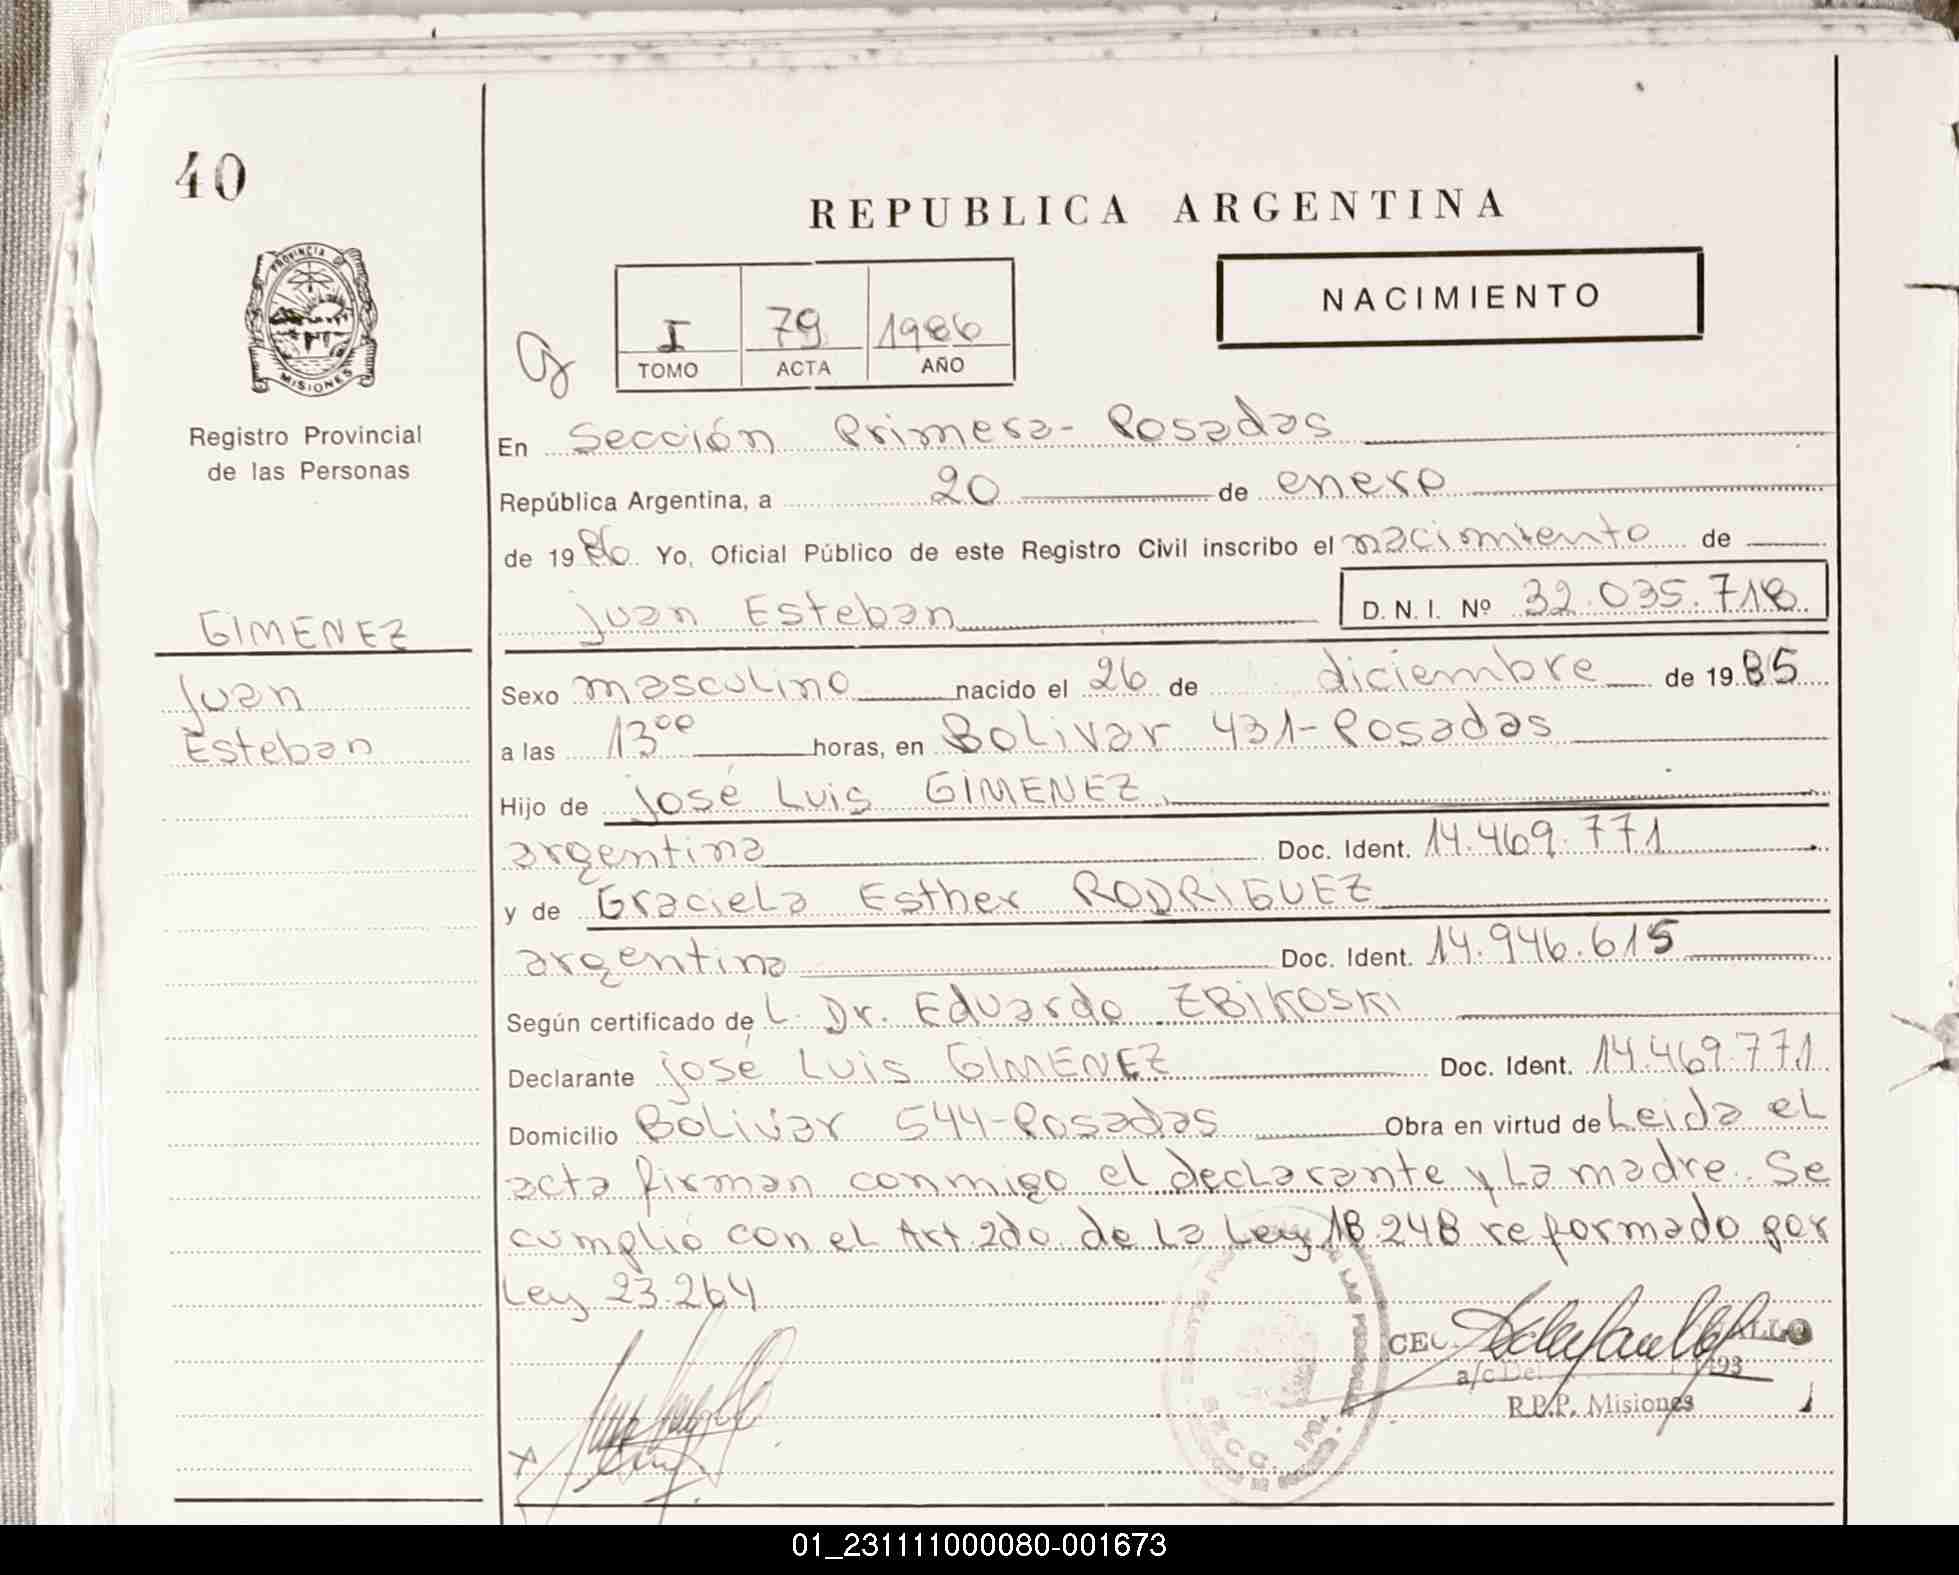 40
REPUBLICA ARGENTINA
NACIMIENTO
I 79 1986
TOMO ACTA AÑO
PROVINCIA DE
MISIONES
Registro Provincial
de las Personas
En Sección Primera - Posadas
República Argentina, a 20 de enero
de 1986 Yo, Oficial Público de este Registro Civil inscribo el nacimiento de
GIMENEZ
Juan Esteban D.N.I. Nº 32.035.718
Juan
Esteban
Sexo masculino nacido el 26 de diciembre de 1985
a las 13ºº horas, en Bolivar 431-Posadas
Hijo de José Luis GIMENEZ
argentina Doc. Ident. 14.469.771
y de Graciela Esther RODRIGUEZ
argentina Doc. Ident. 14.946.615
Según certificado de L. Dr. Eduardo ZBIKOSKI
Declarante José Luis GIMENEZ Doc. Ident. 14.469.771
Domicilio Bolivar 544-Posadas Obra en virtud de Leida el
acta firman conmigo el declarante y la madre. Se
cumplió con el Art. 2do. de la Ley 18.248 reformado por
Ley 23.264
R.P.P. Misiones
01_231111000080-001673